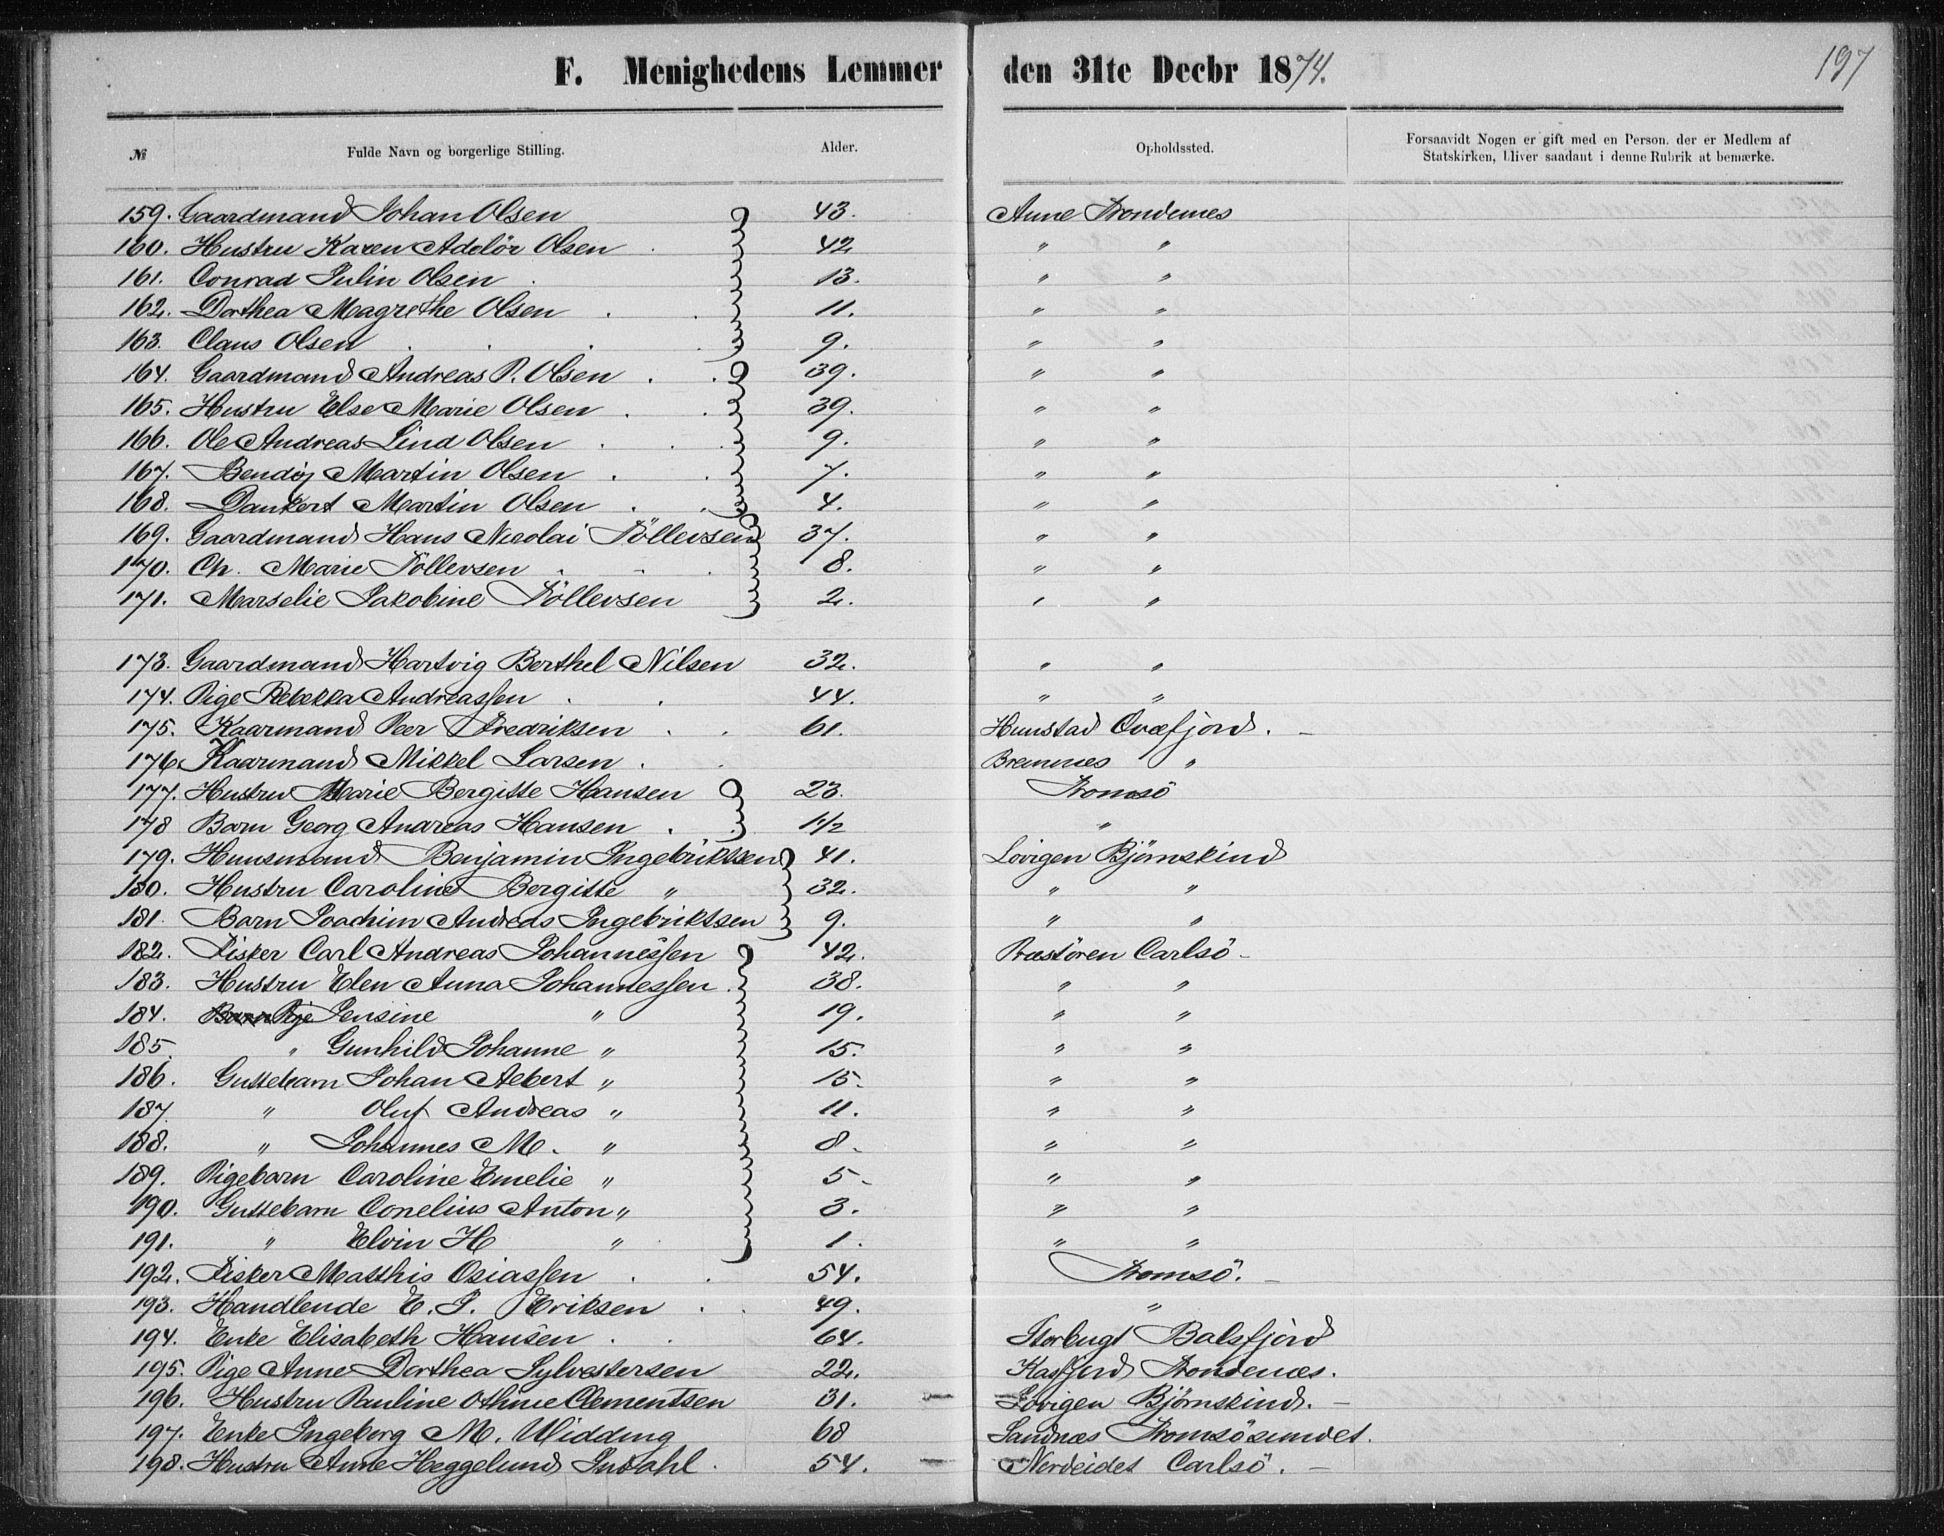 197
F. Menighedens Lemmer den 31te Decbr 1874.
№ Fulde Navn og borgerlige Stilling. Alder. Opholdssted. Forsaavidt Nogen er gift med en Person. der er Medlem af
Statskirken, bliver saadant i denne Rubrik at bemærke.
159. Gaardmand Johan Olsen 43. Anne Trondenes
160. Hustru Karen Adelör Olsen 42 " "
161. Conrad Julin Olsen 13. " "
162. Dorthea Magrethe Olsen 11. " "
163. Claus Olsen 9. " "
164. Gaardmand Andreas P. Olsen 39. " "
165. Hustru Else Marie Olsen 39. " "
166. Ole Andreas Lind Olsen 9. " "
167. Bendig Martin Olsen 7. " "
168. Dankert Martin Olsen 4. " "
169. Gaardmand Hans Nicolai Töllevsen 37. " "
170. Ch. Marie Tollevsen 8. " "
171. Marselie Jakobine Töllevsen 2. " "
173. Gaardmand Hartvig Berthel Nilsen 32. " "
174. Pige Rebekka Andreassen 44. " "
175. Kaarmand Peer Fredriksen 61. Hunstad Qvæfjord.
176. Kaarmand Mikkel Larsen Bremnes "
177. Hustru Marie Bergitte Hansen 23. Tromsö
178 Barn Georg Andreas Hansen 1 1/2 "
179. Huusmand Benjamin Ingebriktsen 41. Lovigen Björnskind
180. Hustru Caroline Bergitte " 32. " "
181. Barn Joachim Andreas Ingebriktsen 9. " "
182. Fisker Carl Andreas Johannessen 42. Præstören Carlsö
183. Hustru Elen Anna Johannessen 38. " "
184. Pige Jensine " 19. " "
185 " Gunhild Johanne " 15. " "
186. Guttebarn Johan Aebert " 15. " "
187 " Oluf Andreas " 11. " "
188. " Johannes M. " 8. " "
189. Pigebarn Caroline Emelie " 5 " "
190. Guttebarn Conelius Anton " 3. " "
191. " Elvin H " 1. " "
192. Fisker Matthis Osiassen 54. Tromsö.
193. Handlende E. P. Eriksen 49. "
194. Enke Elisabeth Hansen 64. Storbugt Balsfjord
195. Pige Anne Dorthea Sylvestersen 22. Kasfjord Trondenæs.
196. Hustru Pauline Othine Clementsen 31. Lovigen Bjørnskind.
197. Enke Ingeborg M. Widding 68 Sandnæs Tromsösundet.
198. Hustru Anne Heggelund Indahl 54. Nordeidet Carlsö.